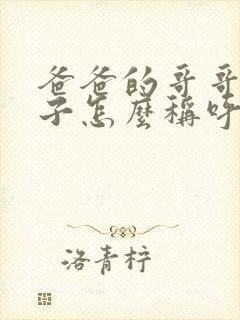 爸爸的哥哥
子怎麼稱呼
洛青梓